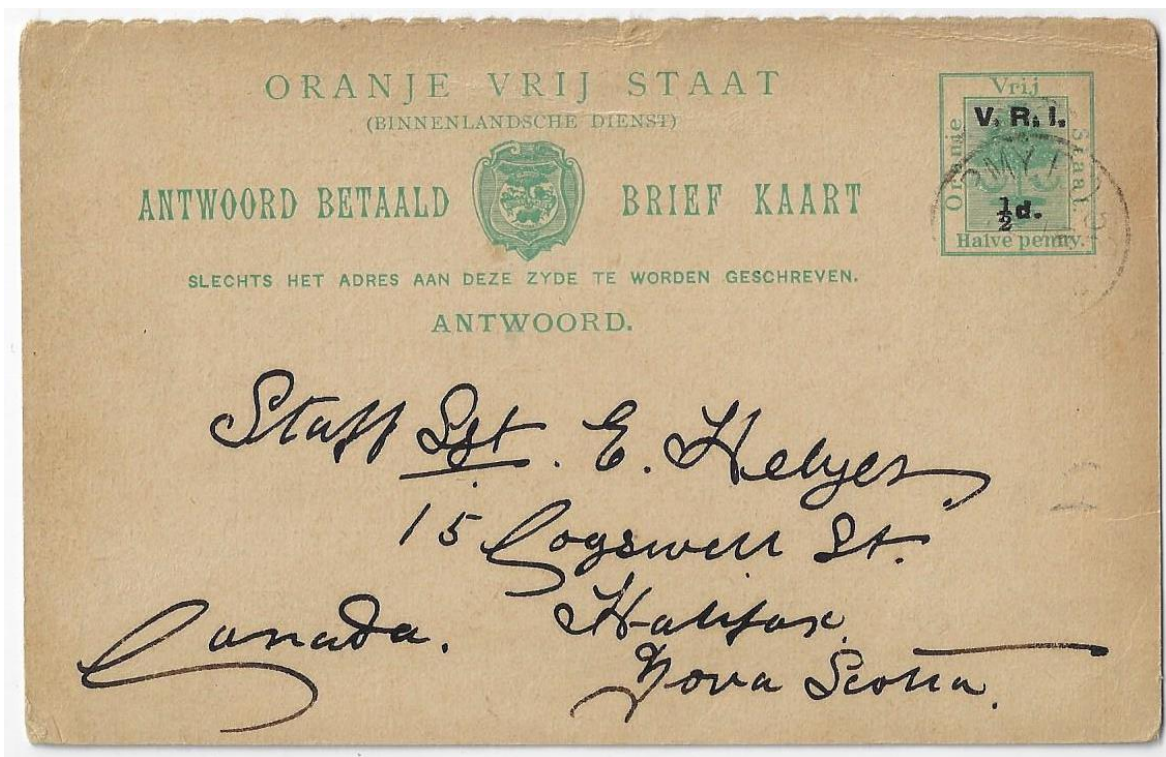 ORANJE VRIJ STAAT
(BINNENLANDSCHE DIENST)
ANTWOORD BETAALD BRIEF KAART
SLECHTS HET ADRES AAN DEZE ZYDE TE WORDEN GESCHREVEN.
ANTWOORD.
Oranje Vrij Staat.
V. R. I.
½d.
Halve penny.
Staff Sgt. E. Helyer
15 Cogswell St.
Halifax
Canada.
Nova Scotia.